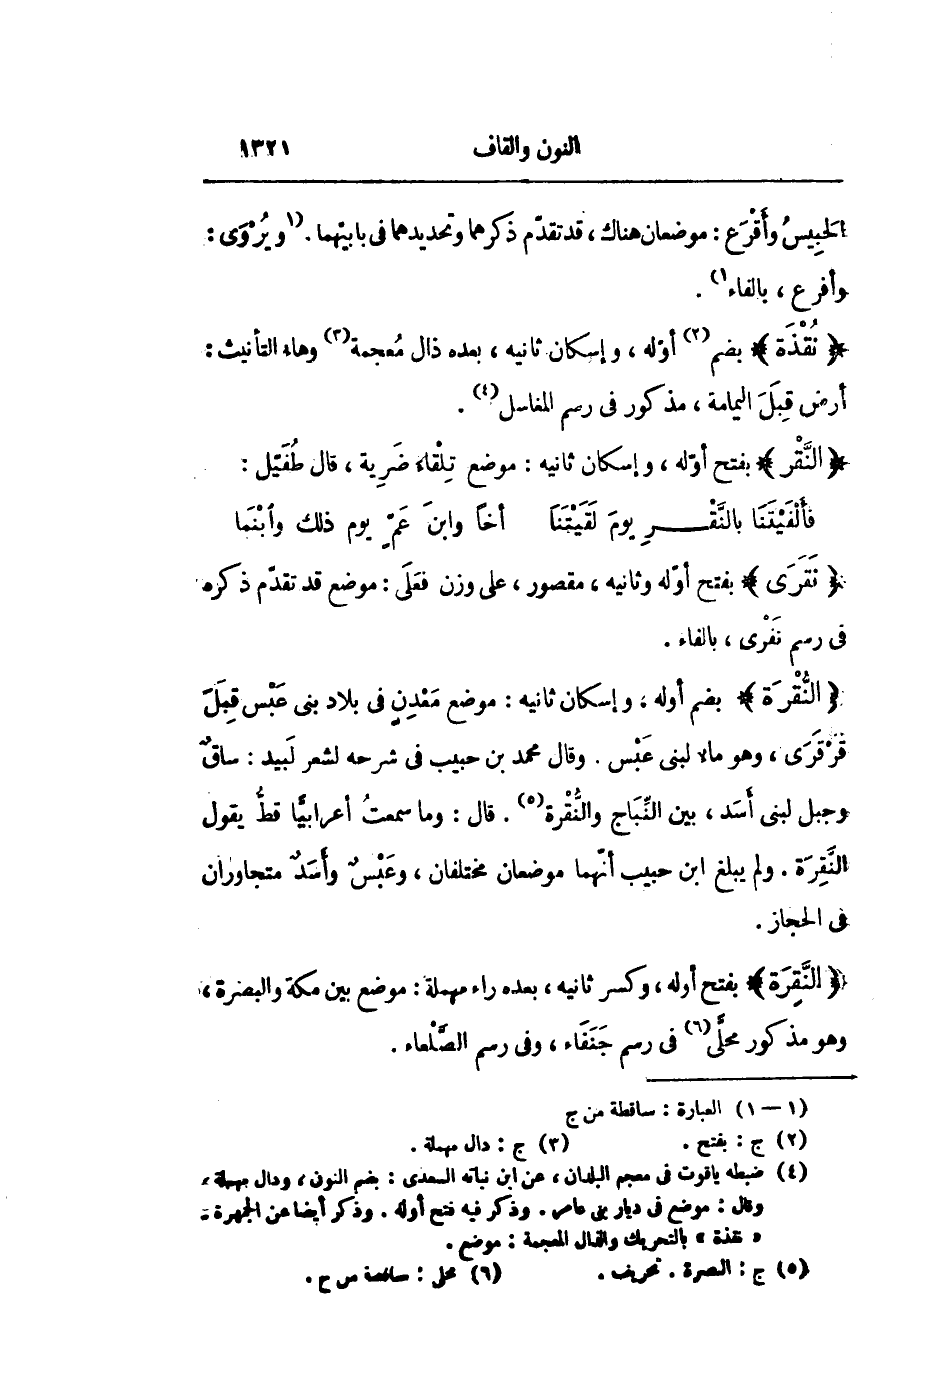 النون والقاف ١٣٢١
الحَبِيسُ وأَقْرَع : موضعان هناك ، قد تقدّم ذكرهما وتحديدهما فى بابيتهما . (١ويُرْوَى :
وأفرع ، بالفاء١) .
﴿ نُقْذَة ﴾ بضم(٢) أوّله ، وإسكان ثانيه ، بعده ذال مُعجمة(٣) وهاء التأنيث :
أرض قِبَلَ اليمامة ، مذكور فى رسم المغاسل(٤) .
﴿ النَّقْر ﴾ بفتح أوّله ، وإسكان ثانيه : موضع تِلْقَاءَ ضَرِية ، قال طُفَيْل :
فَأَلْفَيْتَنَا بالنَّقْــرِ يومَ لَقَيْتَنَا أخًا وابنَ عَمٍّ يوم ذلك وٱبْنَمَا
﴿ نَقَرَى ﴾ بفتح أوّله وثانيه ، مقصور ، على وزن فَعَلَى : موضع قد تقدّم ذكره
فى رسم نَفْرى ، بالفاء .
﴿ النُّقْرَة ﴾ بضم أوله ، وإسكان ثانيه : موضع مَعْدِنٍ فى بلاد بنى عَبْس قِبَلَ
قَرْقَرَى ، وهو ماء لبنى عَبْس . وقال محمد بن حبيب فى شرحه لشعر لَبيد : ساقٌ
وجبل لبنى أَسَد ، بين النِّبَاج والنُّقْرة(٥) . قال : وما سمعتُ أعرابيًّا قطُّ يقول
النَّقِرَة . ولم يبلغ ابن حبيب أنّهما موضعان مختلفان ، وعَبْسٌ وأَسَدٌ متجاوران
فى الحجاز .
﴿ النَّقِرَة ﴾ بفتح أوله ، وكسر ثانيه ، بعده راء مهملة : موضع بين مكة والبصرة ،
وهو مذكور محلًّى(٦) فى رسم جَنَفَاء ، وفى رسم الصَّلْعاء .
(١ — ١) العبارة : ساقطة من ج
(٢) ج : بفتح . (٣) ج : دال مهملة .
(٤) ضبطه ياقوت فى معجم البلدان ، عن ابن نباته السعدى : بضم النون ، ودال مهملة ،
وقال : موضع فى ديار بنى عامر . وذكر فيه فتح أوله . وذكر أيضا عن الجمهرة :
« نقذة » بالتحريك والذال المعجمة : موضع .
(٥) ج : البصرة . تحريف . (٦) محلى : ساقطة من ج .